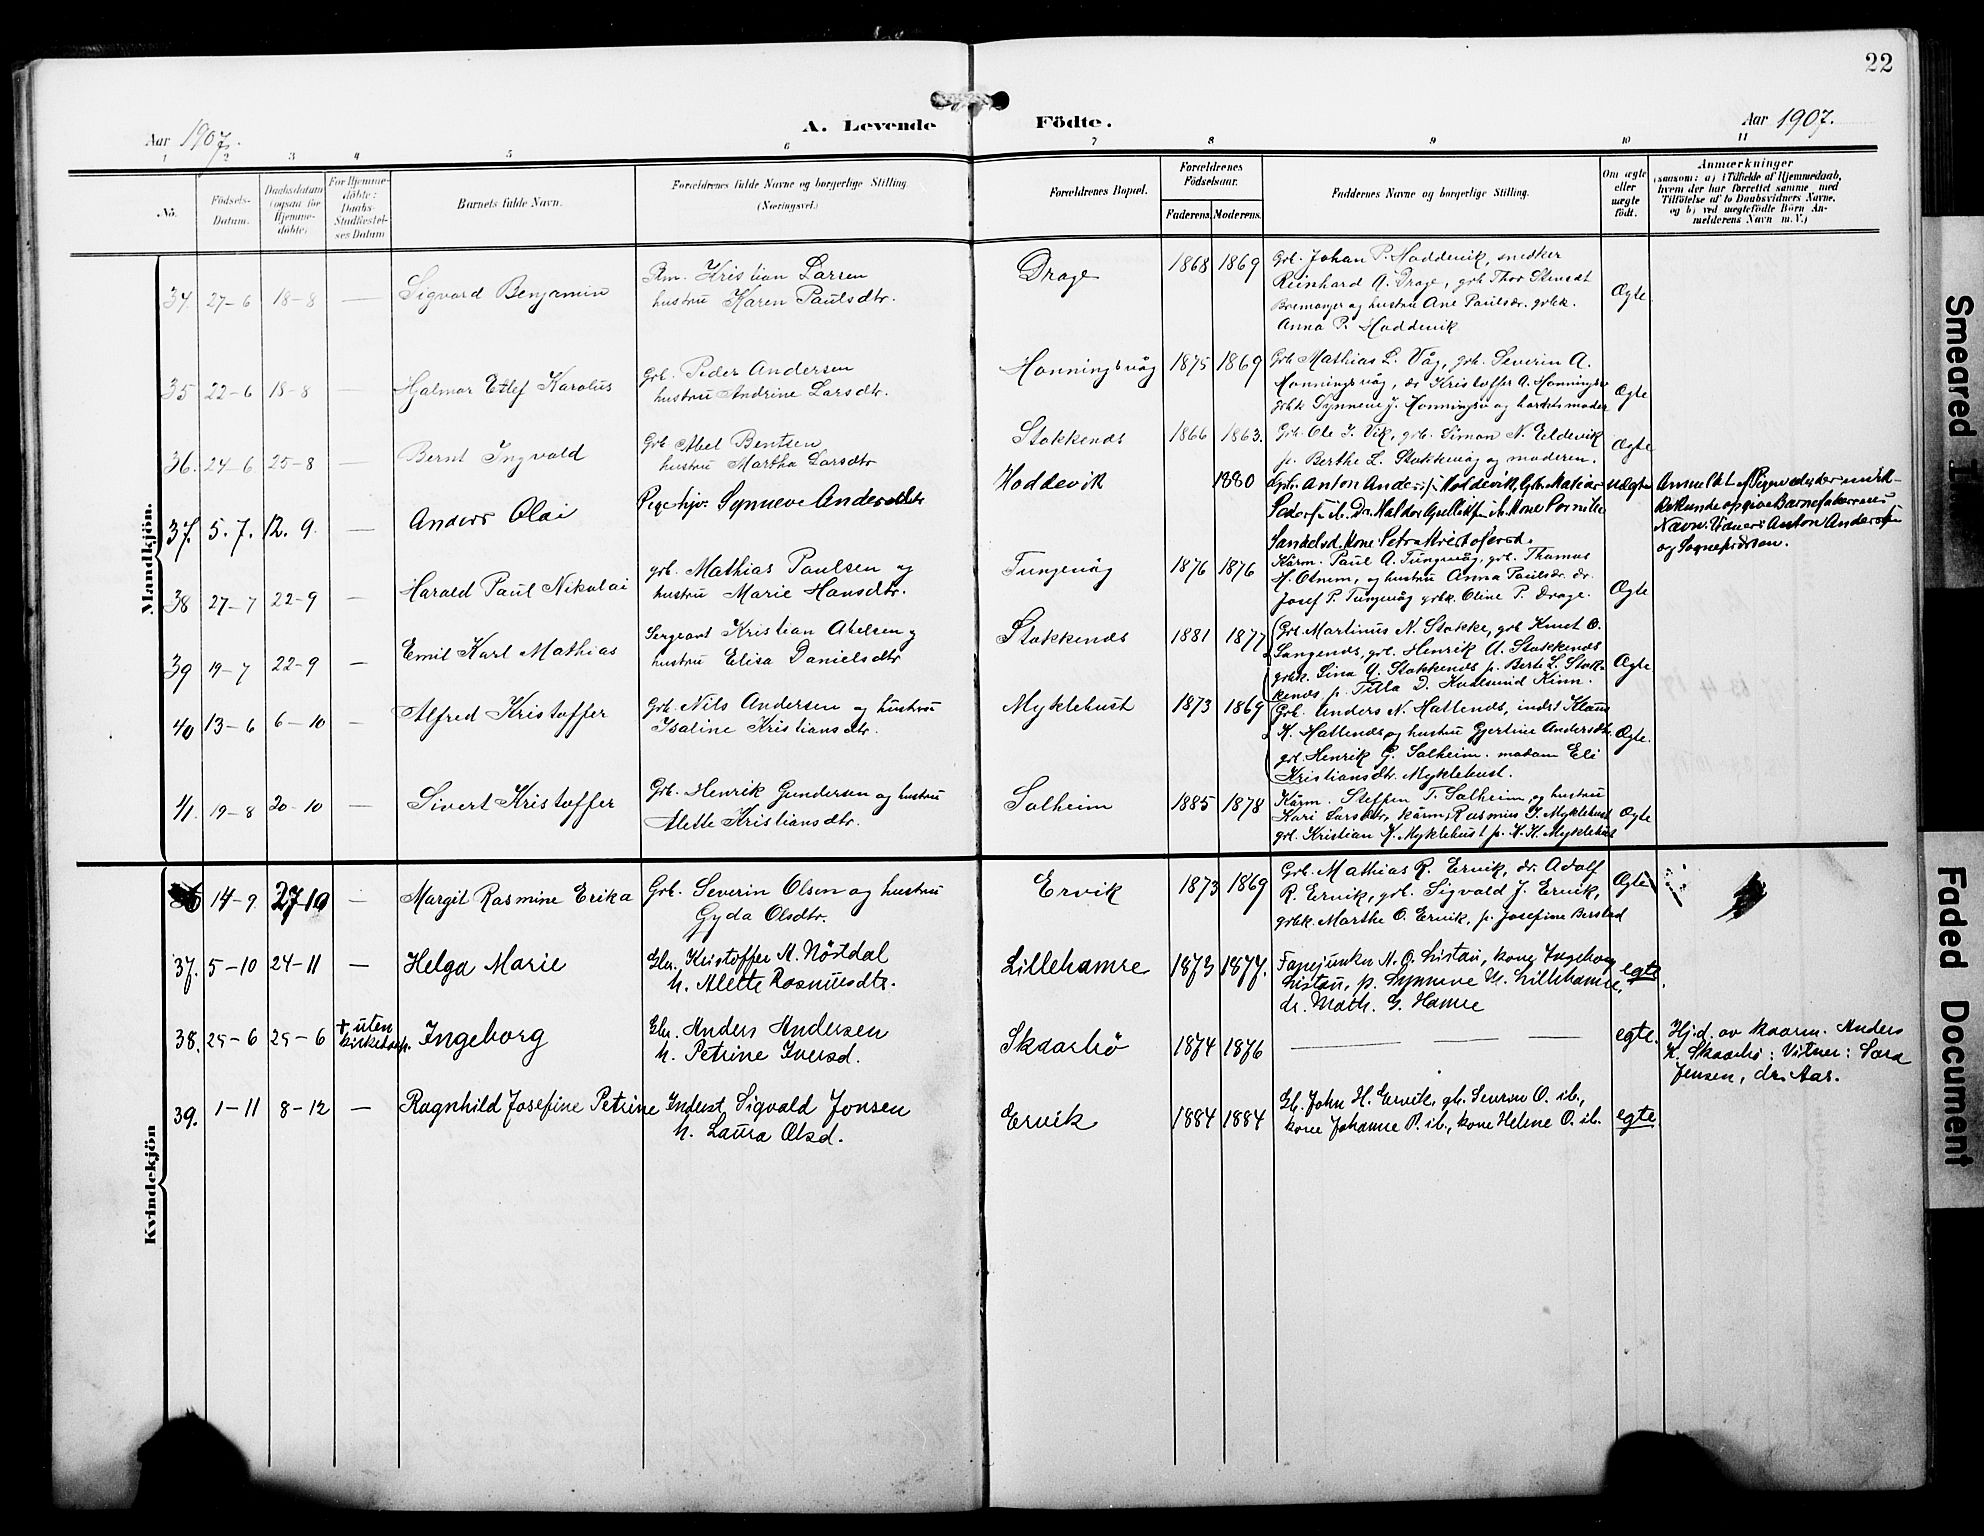 22
Aar 1907.
A. Levende Födte.
Aar 1907.
1 2 3 4 5 6 7 8 9 10 11
No.
Födsels-Datum.
Daabsdatum (ogsaa for Hjemme-döbte)
For Hjemme-döbte: Daabs-Stadfæstel-ses Datum
Barnets fulde Navn.
Forældrenes fulde Navne og borgerlige Stilling (Næringsvei.)
Forældrenes Bopæl.
Forældrenes Födselsaar.
Faderens. Moderens.
Faddernes Navne og borgerlige Stilling.
Om ægte eller uægte födt.
Anmærkninger
(saasom: a) i Tilfælde af Hjemmedaab,
hvem der har forrettet samme med
Tilföielse af to Daabsvidners Navne,
og b) ved uægtefödte Börn An-
melderens Navn m. V.)
Mandkjön.
34. 27-6 18-8 — Sigvard Benjamin
Kristian Larsen
hustru Karen Paulsdtr.
Drage 1868 1869
Grb. Johan P. Hoddevik, snedker
Reinhard A. Drage, grb. Thor
Bremanger og hustru Ane Paulsdr. grbk.
Anna P. Hoddevik
Ægte.
35 22-6 18-8 — Hjalmar Karolus
Grb. Peder Andersen
hustru Andrine Larsdtr.
Honningsvåg 1875 1869
Grb Mathias L. Våg, grb. Severin A.
Honningsvåg, dr Kristoffer A. Honningsv
grbk Synneve J. Honningsv og barnets moder
Ægte
36. 24-6 25-8 — Bernt Ingvald
Grb Abel Bentsen
hustru Martha Larsdtr
Stokkenes 1866 1863.
Grb. Ole J. Vik, grb. Simon N. Eldevik
p. Berthe L. Stokkevåg og moderen.
Ægte
37. 5.7. 12.9. Anders Olai
Pige hjv. Synneve Andersdtr
Hoddevik 1880
Grbr. Anton Anders. Hoddevik, Grb. Matias
Peders. ib. Dr. Haldor ib. Kone Pernille
Sandelsd. Kone Petra Kristofersd.
uægte
Anmeldt af Pigen
Navn. Vidner: Anton Anders
og Sognepresten.
38 27-7 22-9 — Harald Paul Nikolai
grb. Mathias Paulsen og
hustru Marie Hansdtr.
Tungevåg 1876 1876
Kårm. Paul A. Tungevåg, grb. Thomas
H. Otnem, og hustru Anna Paulsdr. dr.
Josef P. Tungevåg grbk. Oline P. Drage.
Ægte
39 19-7 22-9 — Emil Karl Mathias
Sergeant Kristian Abelsen og
hustru Elisa Danielsdtr
Stokkenes 1881 1877
Grb. Martinus N. Stokke, grb Knut O.
Langenes, grb. Henrik A. Stokkenes
grbk. Lina Stokkenes p. Berte L. Stok-
kenes p. Tilla D. Kvalsund Kinn.
Ægte
40 13-6 6-10 — Alfred Kristoffer
Grb. Nils Andersen og hustru
Isaline Kristiansdtr.
Myklebust 1873 1869
Grb. Anders N. Hallenes, indst Klaus
K. Hallenes og hustru Gjertine Andersdtr.
grb. Henrik G. Salheim. madam Eli
Kristiansdtr. Myklebust.
Ægte.
41. 19-8 20-10 — Sivert Kristoffer
Grb. Henrik Gundersen og hustru
Alette Kristiansdtr.
Salheim 1885 1878
Kårm. Steffen T. Salheim og hustru
Kari Larsdtr, kårm. Rasmus J. Myklebust
grb. Kristian K. Myklebust p. K. K. Myklebust
Ægte
Kvindekjön
14-9 27 10 — Margit Rasmine Erika
Grb. Severin Olsen og hustru
Gyda Olsdtr.
Ervik 1873 1869
Grb. Mathias R. Ervik, dr. Adolf
R. Ervik, grb. Sigvald J. Ervik,
grbk. Marthe O. Ervik, p. Josefine Berstad
Ægte
37. 5-10 24-11 — Helga Marie
Gbr. Kristoffer M. Nördal
h. Alette Rasmusdtr.
Lillehamre 1873 1877.
Fanejunker N. O. Listau, kone Ingeborg
Listau, p. Synneve Lillehamre,
dr. Math. G. Hamre
egte.
38. 25-6 25-6 + uten kirkedaap. Ingeborg
Gbr. Anders Andersen
h. Petrine Iversd.
Skaarbö 1874 1876
— — —
egte.
Hj.d. av kaarm. Anders
Skaarbö: Vitner: Sara
Jensen, dr. Aar.
39. 1-11 8-12 — Ragnhild Josefine Petrine
Inderst Sigvald Jonsen
h. Laura Olsd.
Ervik 1884 1884
Gb. John H. Ervik, gb. Severin O. ib.,
kone Johanne P. ib., kone Helene O. ib.
egte.
Smeared
Faded Document